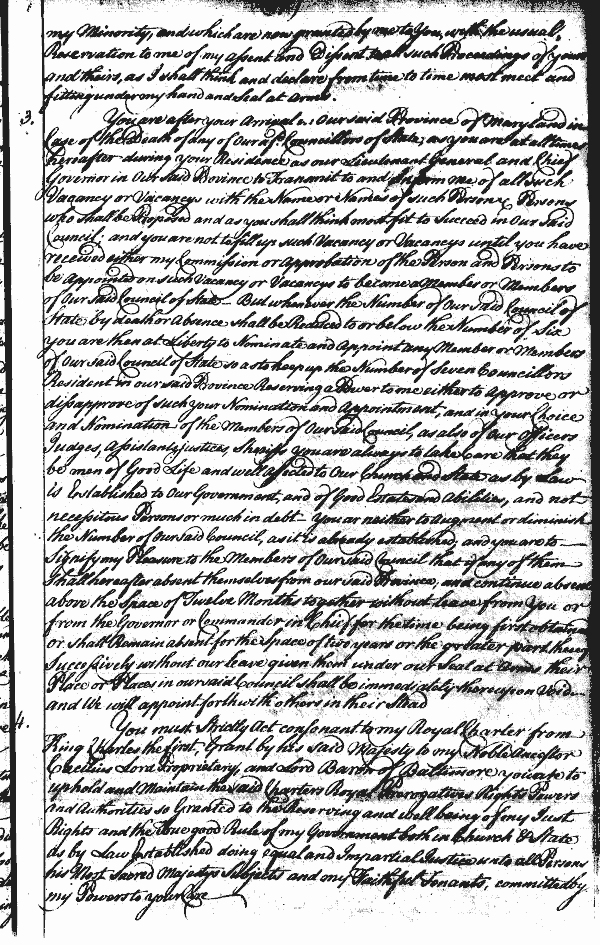 my Minority, and which are now granted by me to You, with the usual
Reservation to me of my assent and Dissent to all such Proceedings of yours
and theirs, as I shall think and declare from time to time most meet and
fitting under my hand and Seal at Arms.
3. You are after your Arrival in Our said Province of Maryland in
Case of the Death of any of Our Councillors of State, as you are at all times
hereafter during your Residence as our Lieutenant General and Chief
Governor in Our said Province to Transmit to and Inform me of all such
Vacancy or Vacancys with the Name or Names of such Person or Persons
who shall be Proposed and as you shall think most fit to Succeed in Our said
Council; and you are not to fill up such Vacancy or Vacancys until you have
received either my Commission or Approbation of the Person and Persons to
be Appointed on such Vacancy or Vacancys to become a Member or Members
of Our said Council of State – But whenever the Number of Our said Council of
State by death or Absence shall be Reduced to or below the Number of Six
you are then at Liberty to Nominate and Appoint any Member or Members
of Our said Council of State so as to keep up the Number of Seven Councillors
Resident in our said Province Reserving a Power to me either to Approve or
disapprove of such your Nomination and Appointment, and in your Choice
and Nomination of the Members of Our said Council, as also of our Officers
Judges, Assistants, Justices Sheriffs you are always to take care that they
be men of Good Life and well affected to Our Church and State as by Law
is Established to Our Government, and of Good Estates and Abilities, and not
necessitous Persons or much in debt – You are neither to Augment or diminish
the Number of Our said Council, as it is already established, and you are to
signify my Pleasure to the Members of Our said Council that if any of them
shall hereafter absent themselves from our said Province, and continue absent
above the Space of Twelve Months together without leave from You or
from the Governor or Commander in Chief for the time being first obtained
or shall Remain absent for the Space of two years or the greater part thereof
Successively without our leave given them under our Seal at Arms their
Place or Places in our said Council shall be immediately thereupon Void
and We will appoint forthwith others in their Stead
4. You must Strictly Act consonant to my Royal Charter from
King Charles the first, Grant by his said Majesty to my Noble Ancestor
Cecilius Lord Proprietary, and Lord Baron of Baltimore you are to
uphold and Maintain the said Charters Royal Prerogatives Rights Powers
and Authorities so Granted to the Reserving and well being of my Just
Rights and the true good Rule of my Government both in Church & State
as by Law Established doing equal and Impartial Justice unto all Persons
his Most Sacred Majestys Subjects and my Faithful Tenants, committed by
my Powers to your Care